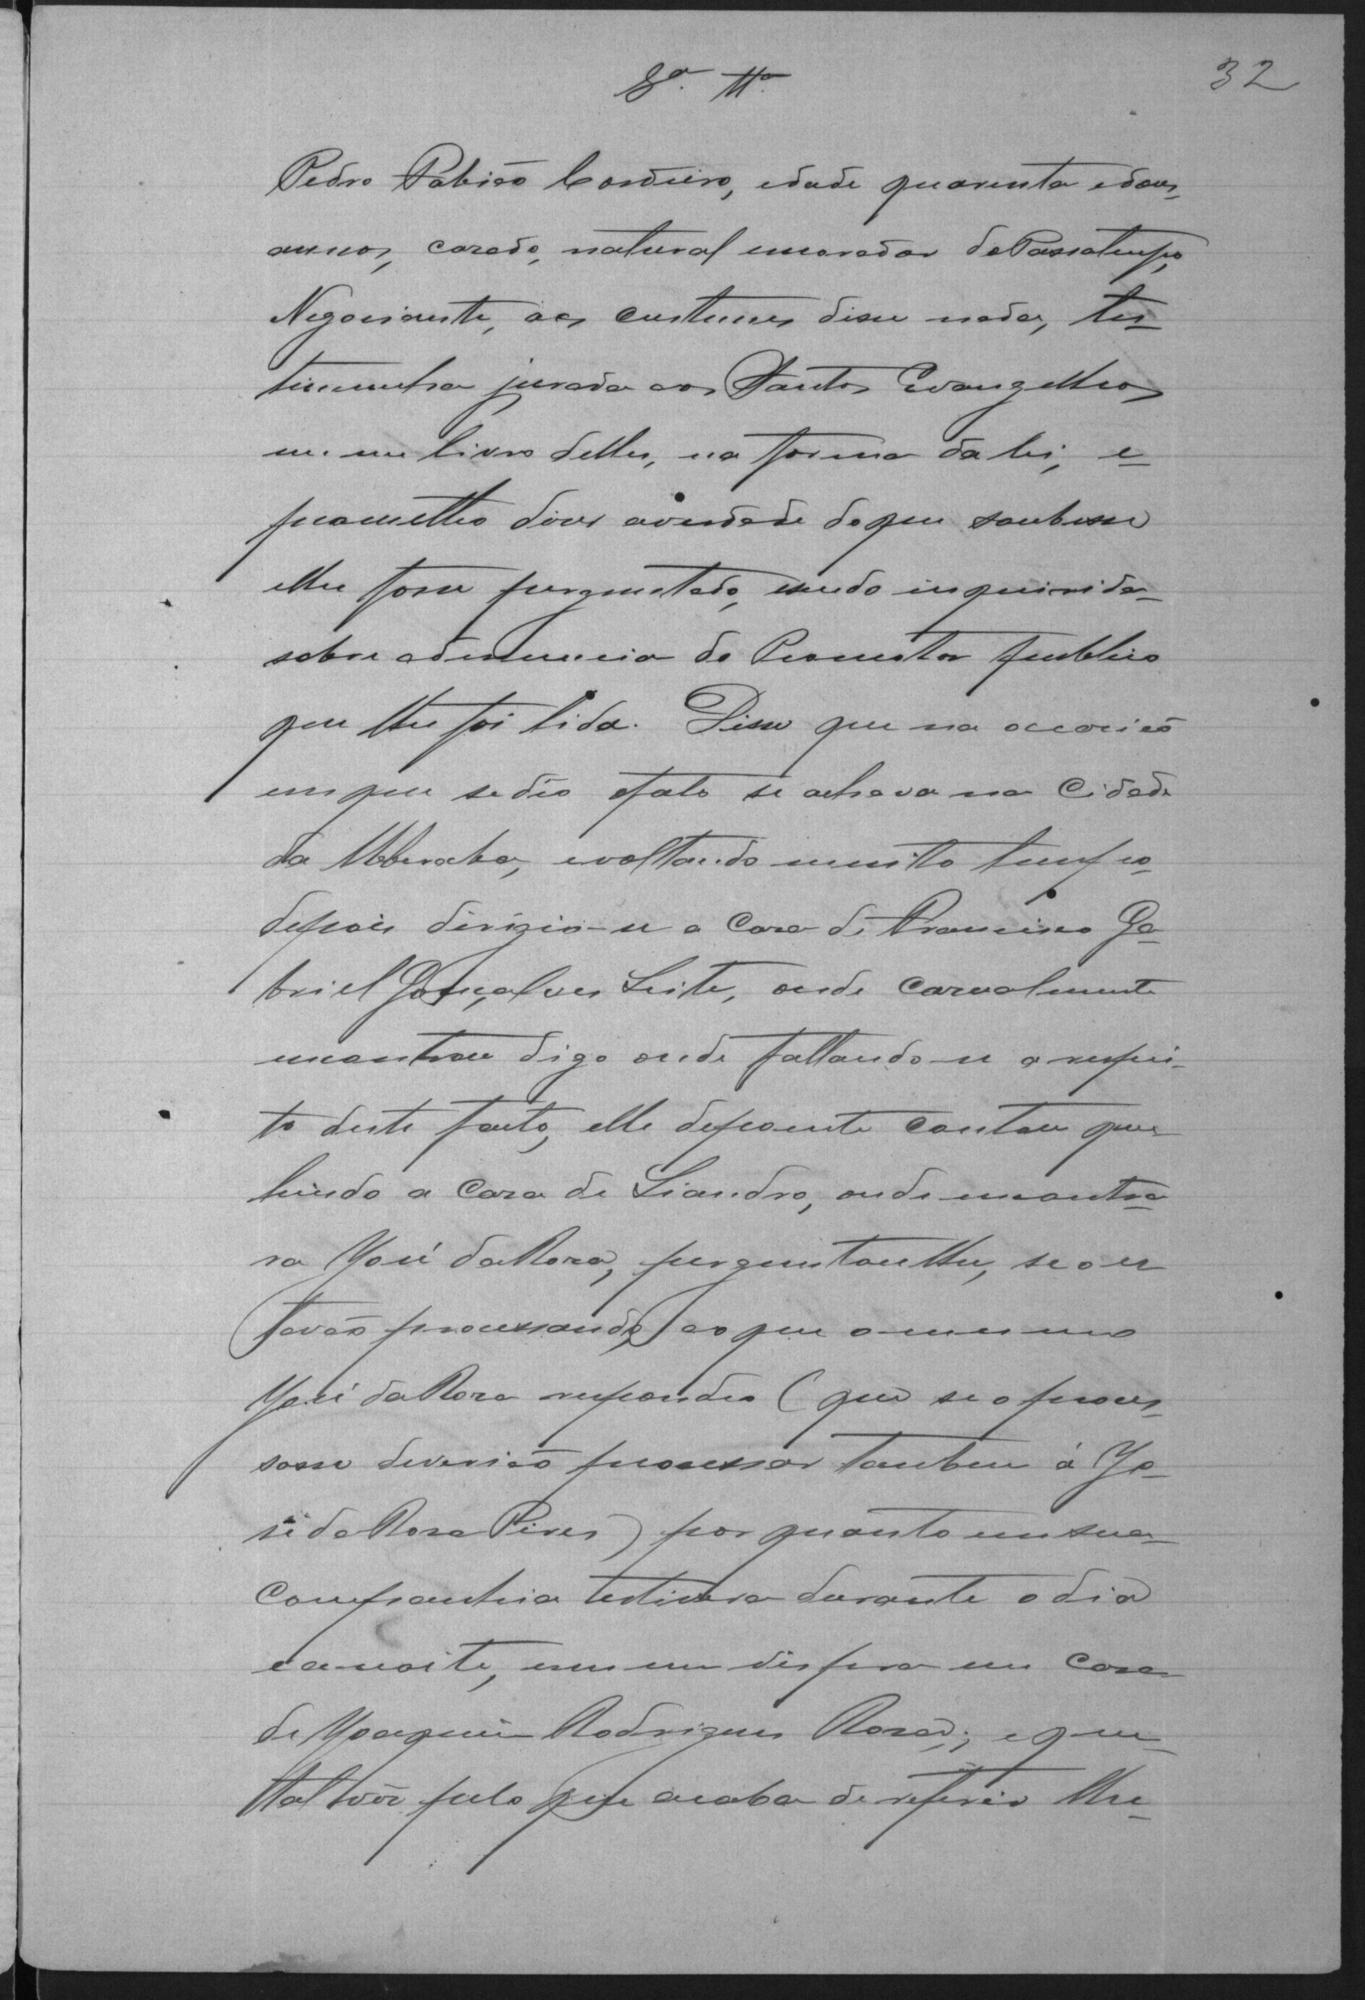 32
8ª. Ttª.
Pedro Fabião Cordeiro, edade quarenta edous
annos, casado, natural emorador do Passatempo,
Negociante, aos custumes disse nada, tes-
timunha jurada aos Santos Evangelhos
em um livro delles, na forma da lei, e
prometteo diser averdade doque soubesse
elhe fosse perguntado, esendo inquirida
sobre adenuncia do Promotor publico
que lhe foi lida. Disse que na occasião
emque sedeo ofato se achava na Cidade
da Uberaba, evoltando muitto tempo
depois dirigio-se a casa de Francisco Ga-
briel Gonçalves Leite, onde casualmente
encontrou digo onde fallando-se a respei-
to deste facto, elle depoente contou que
hindo a casa de Liandro, onde encontra-
ra José da Rosa, perguntoulhe, se o es
(tavão processando) ao que o mesmo
José da Rosa respondeo (que se o proces-
sasse deverião processar tambem á Jo-
sé da Rosa Pires) por quanto em sua
companhia estivera durante o dia
e a noite, em casa
de Joaquim Rodrigues Rosa; e que
talvez pelo que acaba de referir lhe